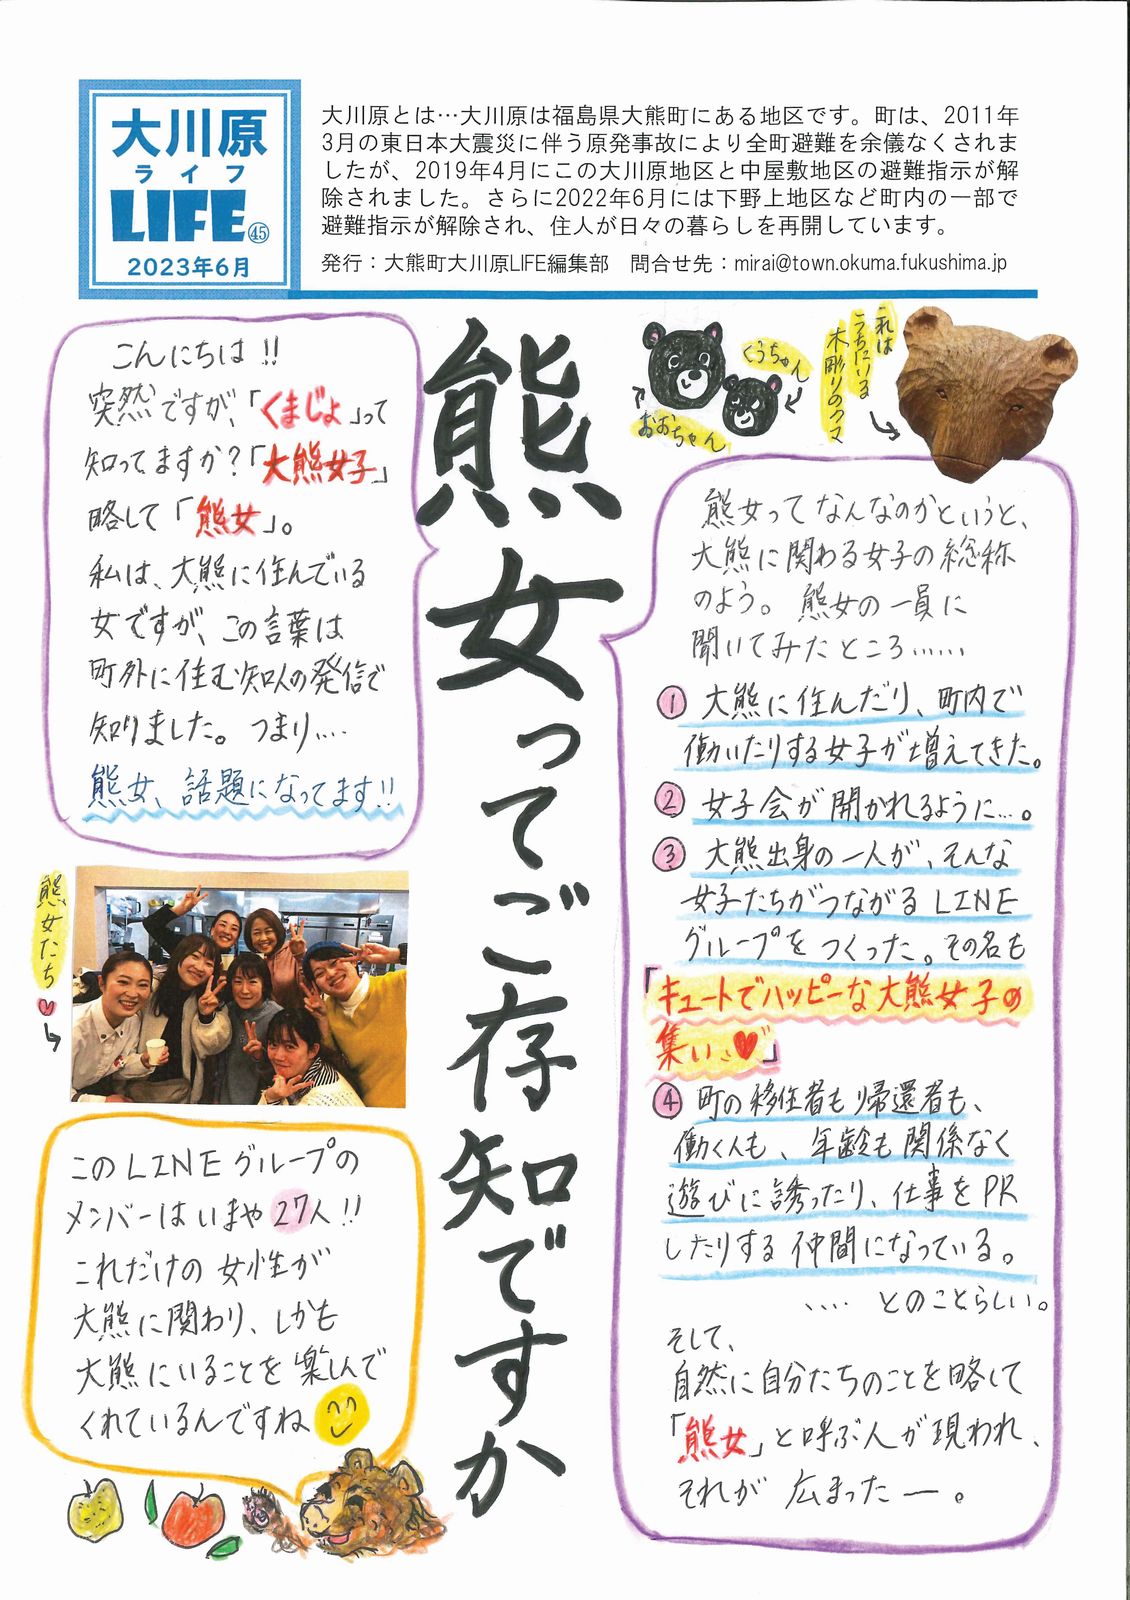 大川原
ライフ
LIFE㊺
2023年6月
大川原とは…大川原は福島県大熊町にある地区です。町は、2011年
3月の東日本大震災に伴う原発事故により全町避難を余儀なくされま
したが、2019年4月にこの大川原地区と中屋敷地区の避難指示が解
除されました。さらに2022年6月には下野上地区など町内の一部で
避難指示が解除され、住人が日々の暮らしを再開しています。
発行：大熊町大川原LIFE編集部　問合せ先：mirai@town.okuma.fukushima.jp
熊女ってご存知ですか
こんにちは!!
突然ですが、「くまじょ」って
知ってますか？「大熊女子」
略して「熊女」。
私は、大熊に住んでいる
女ですが、この言葉は
町外に住む知人の発信で
知りました。つまり‥‥
熊女、話題になってます!!
おおちゃん
くうちゃん
これは
うちにいる
木彫りのクマ
熊女ってなんなのかというと、
大熊に関わる女子の総称
のよう。熊女の一員に
聞いてみたところ……
① 大熊に住んだり、町内で
働いたりする女子が増えてきた。
② 女子会が開かれるように…。
③ 大熊出身の一人が、そんな
女子たちがつながるLINE
グループをつくった。その名も
「キュートでハッピーな大熊女子の
集い♥」
④ 町の移住者も帰還者も、
働く人も、年齢も関係なく
遊びに誘ったり、仕事をPR
したりする仲間になっている。
‥‥とのことらしい。
そして、
自然に自分たちのことを略して
「熊女」と呼ぶ人が現われ、
それが広まったー。
熊女たち♥
このLINEグループの
メンバーはいまや27人!!
これだけの女性が
大熊に関わり、しかも
大熊にいることを楽しんで
くれているんですね